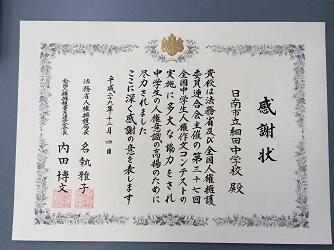 感謝状
日南市立細田中学校 殿
貴校は法務省及び全国人権擁護
委員連合会主催の第三十七回
全国中学生人権作文コンテストの
実施に多大な協力をされ
中学生の人権意識の高揚のために
尽力されました
ここに深く感謝の意を表します
平成二十九年十二月四日
法務省人権擁護局長 名執雅子
全国人権擁護委員連合会長 内田博文